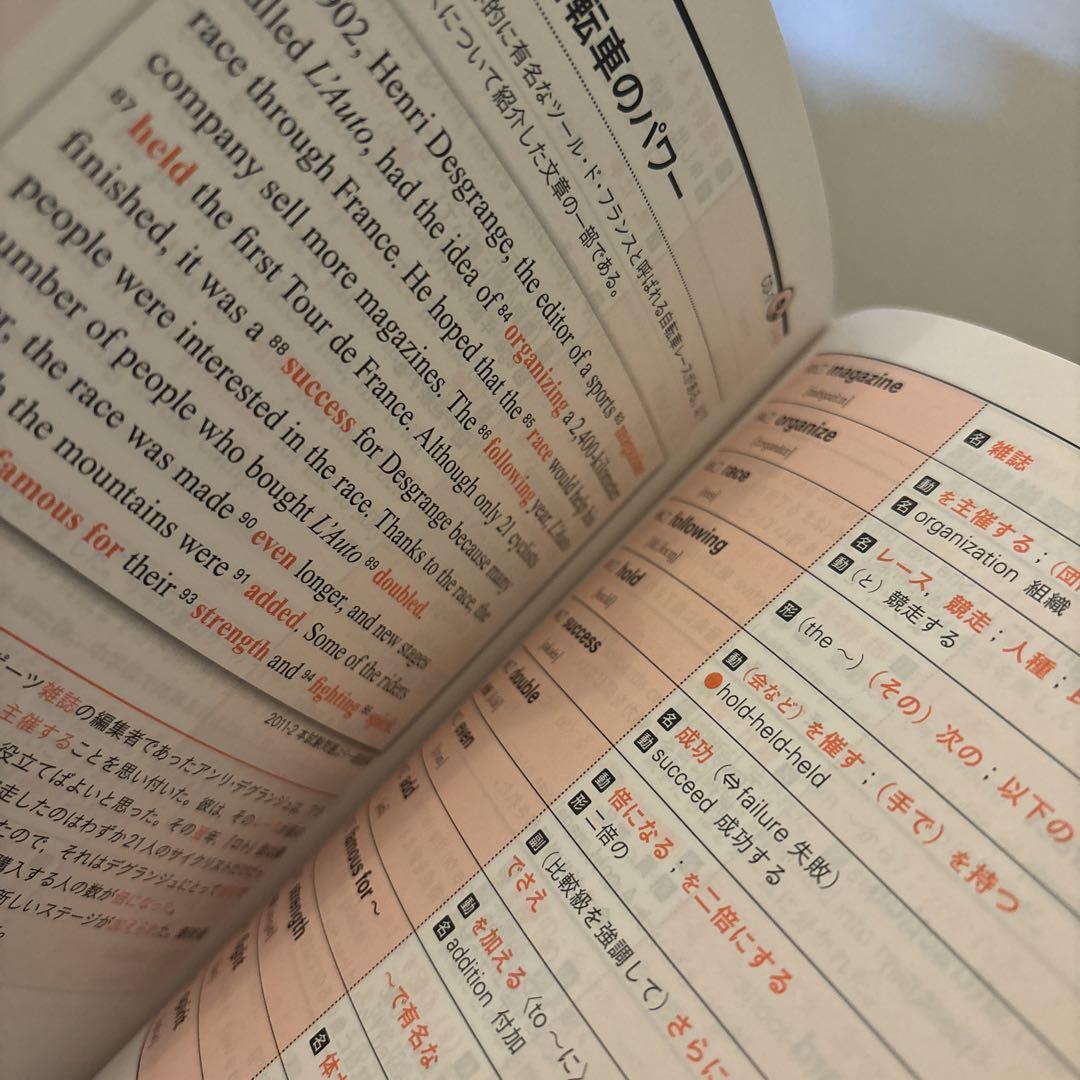 転車のパワー
的に有名なツール・ド・フランスと呼ばれる自転車レースがある。
について紹介した文章の一部である。
1902, Henri Desgrange, the editor of a sports magazine
alled L'Auto, had the idea of 84 organizing a 2,400-kilometer
race through France. He hoped that the 85 race would help his
company sell more magazines. The 86 following year, L'Auto
87 held the first Tour de France. Although only 21 cyclists
finished, it was a 88 success for Desgrange because many
people were interested in the race. Thanks to the race, the
umber of people who bought L'Auto 89 doubled.
r, the race was made 90 even longer, and new stages
the mountains were 91 added. Some of the riders
famous for their 93 strength and 94 fighting spirit
ポーツ雑誌の編集者であったアンリ・デグランジュは
主催することを思い付いた。彼は、その
役立てばよいと思った。その
走したのはわずか21人のサイクリスト
たので、それはデグランジュにとって
購入する人の数が倍になった。
新しいステージが加えられた。
magazine
名 雑誌
organize
動 を主催する；(団
名 organization 組織
race
名 レース，競走；人種；
動 (と) 競走する
following
形 (the ～)（その）次の；以下の
hold
動 (会など) を催す；(手で) を持つ
hold-held-held
success
名 成功 (⇔failure 失敗)
動 succeed 成功する
double
動 倍になる；を二倍にする
形 二倍の
even
副 (比較級を強調して) さらに
でさえ
add
動 を加える〈to ～に〉
名 addition 付加
famous for ～
～で有名な
strength
名